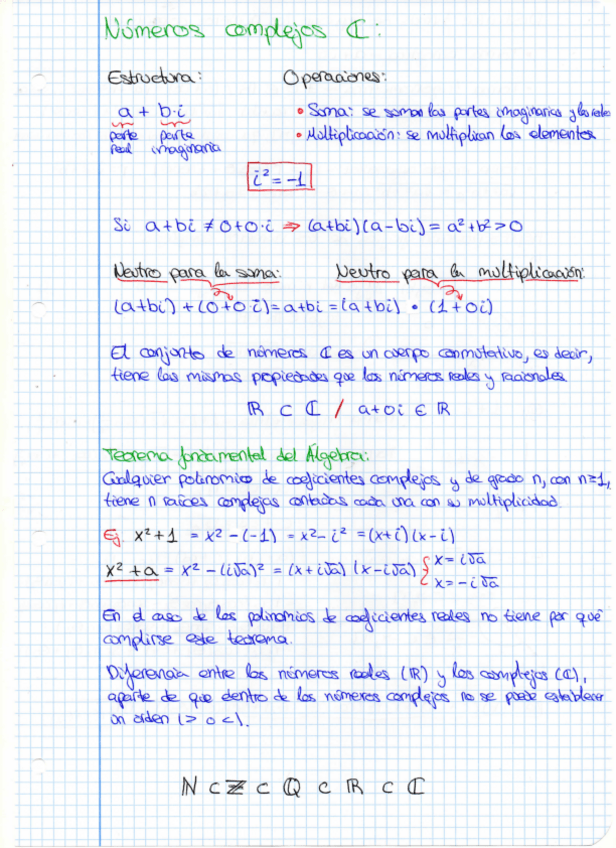 Números complejos ℂ:
Estructura: Operaciones:
a + b·i • Suma: se suman las partes imaginarias y las reales
parte real parte imaginaria • Multiplicación: se multiplican los elementos
i² = -1
Si a+bi ≠ 0+0·i ⇒ (a+bi)(a-bi) = a²+b² > 0
Neutro para la suma: Neutro para la multiplicación:
(a+bi) + (0+0·i) = a+bi = (a+bi) • (1+0i)
El conjunto de números ℂ es un cuerpo conmutativo, es decir,
tiene las mismas propiedades que los números reales y racionales.
ℝ ⊂ ℂ / a+0i ∈ ℝ
Teorema fundamental del Álgebra:
Cualquier polinomio de coeficientes complejos y de grado n, con n≥1,
tiene n raíces complejas contadas cada una con su multiplicidad.
Ej x²+1 = x²-(-1) = x²-i² = (x+i)(x-i)
x²+a = x²-(i√a)² = (x+i√a)(x-i√a) { x=i√a
x=-i√a
En el caso de los polinomios de coeficientes reales no tiene por qué
cumplirse este teorema.
Diferencia entre los números reales (ℝ) y los complejos (ℂ),
aparte de que dentro de los números complejos no se puede establecer
un orden (> o <).
ℕ ⊂ ℤ ⊂ ℚ ⊂ ℝ ⊂ ℂ